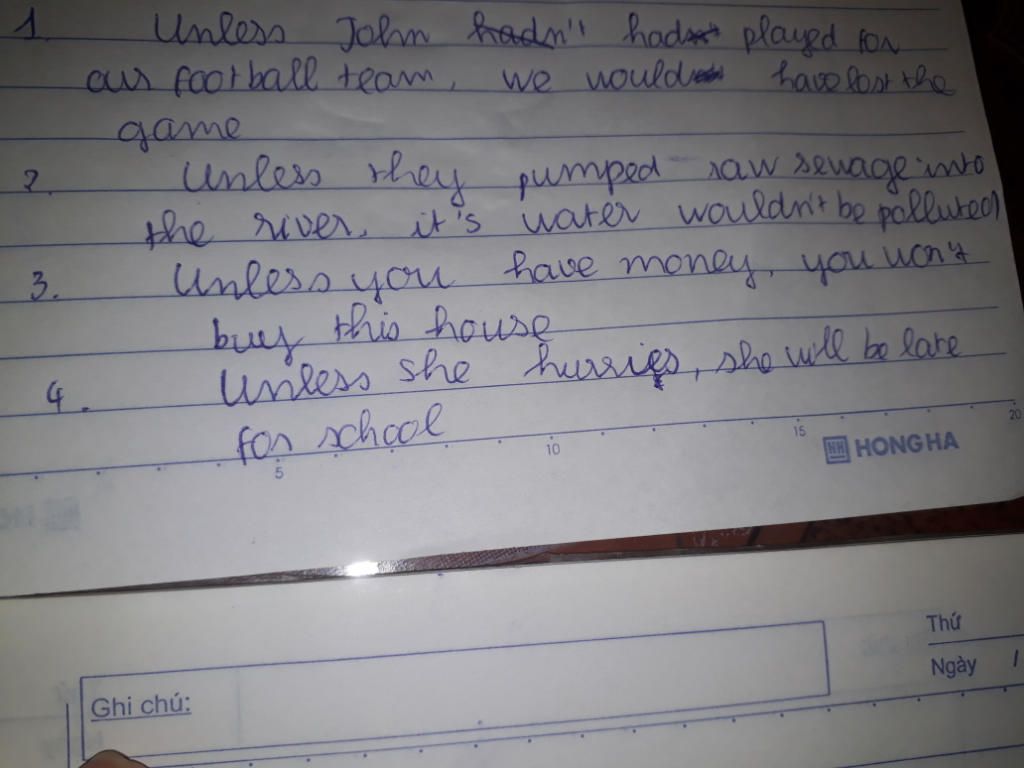 1. Unless John had played for
our football team, we would have lost the
game
2. Unless they pumped raw sewage into
the river, it's water wouldn't be polluted
3. Unless you have money, you won't
buy this house
4. Unless she hurries, she will be late
for school
5 10 15 20
HONG HA
Thứ
Ngày 1
Ghi chú: